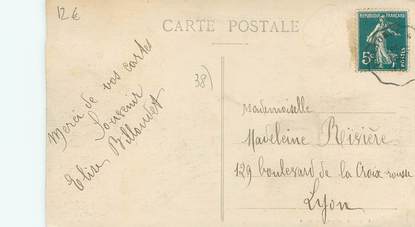 12€
CARTE POSTALE
REPUBLIQUE FRANÇAISE
5c
POSTES
38)
Merci de vos cartes
Souvenir
Elise
Mademoiselle
Madeleine Rivière
129 boulevard de la Croix rousse
Lyon